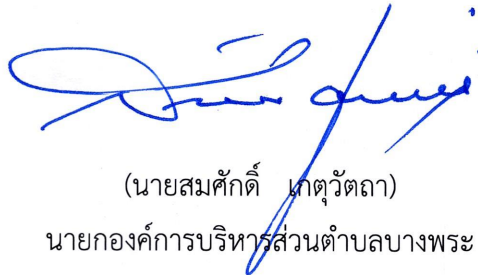 (นายสมศักดิ์ เกตุวัตถา)
นายกองค์การบริหารส่วนตำบลบางพระ